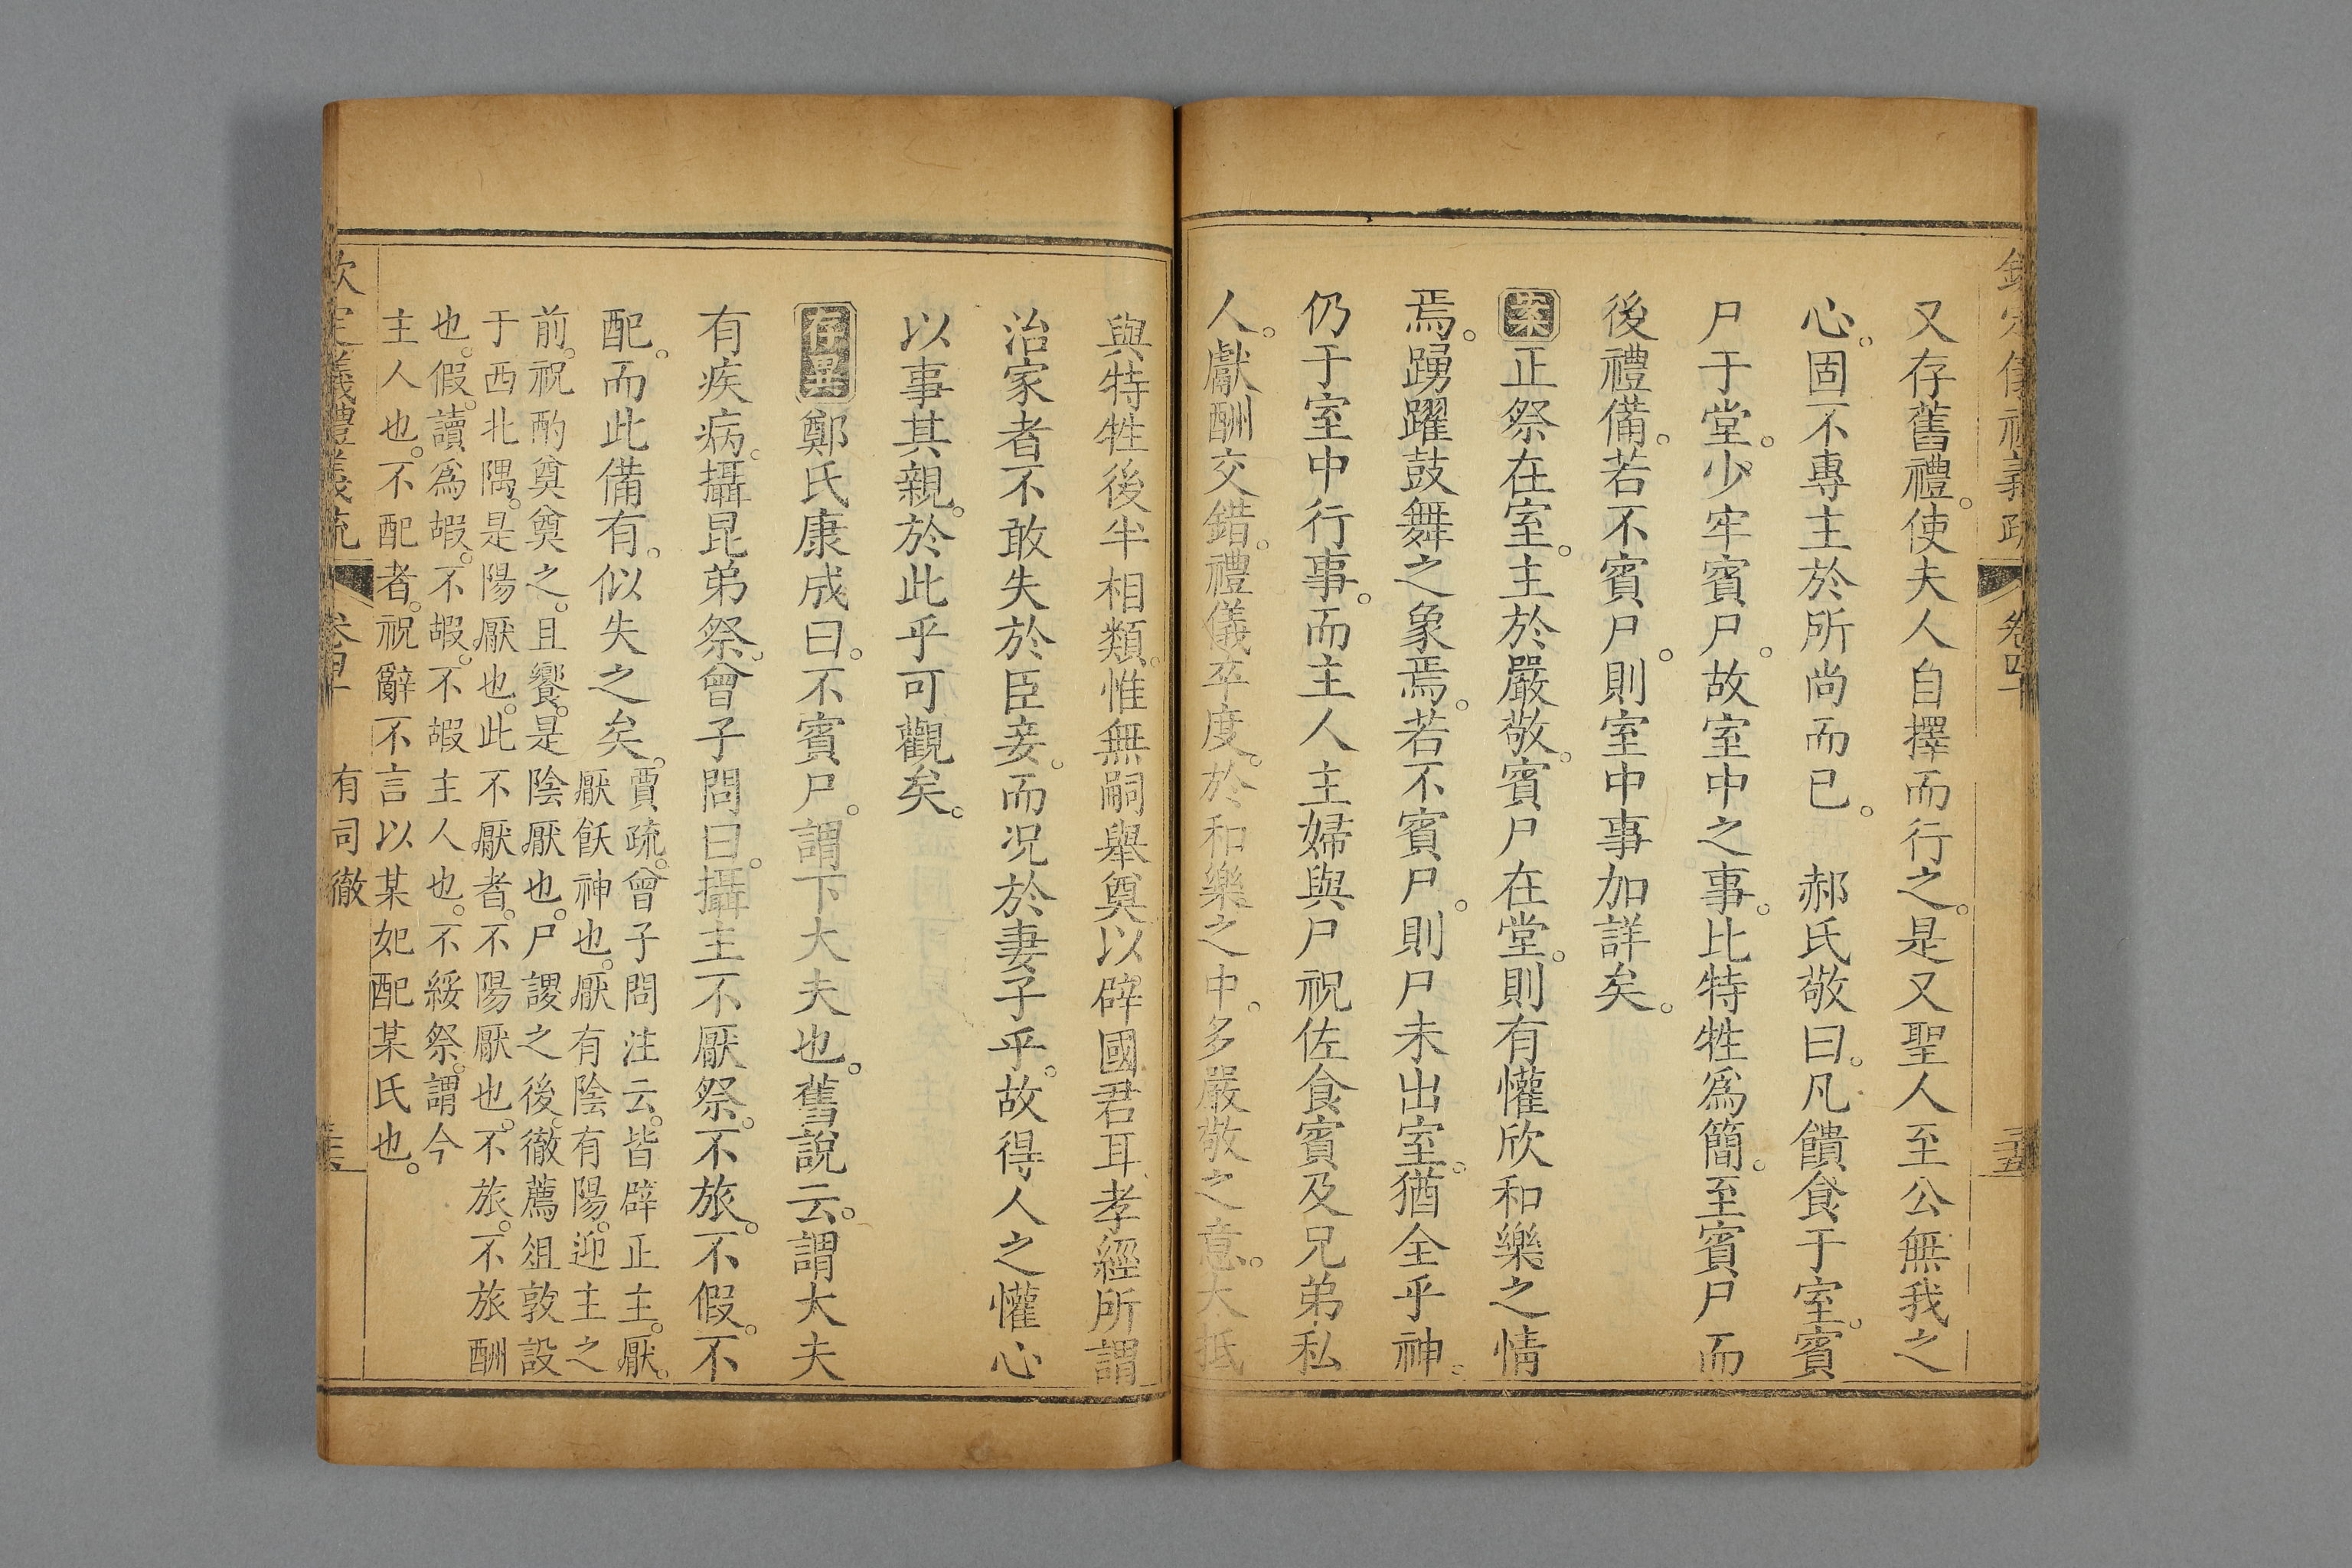 又存舊禮。使夫人自擇而行之。是又聖人至公無我之
心。固不專主於所尚而已。　郝氏敬曰。凡饋食于室。賓
尸于堂。少牢賓尸。故室中之事。比特牲爲簡。至賓尸而
後禮備。若不賓尸。則室中事加詳矣。
案正祭在室。主於嚴敬。賓尸在堂。則有懽欣和樂之情
焉。踴躍鼓舞之象焉。若不賓尸。則尸未出室。猶全乎神。
仍于室中行事。而主人主婦與尸祝佐食賓及兄弟私
人。獻酬交錯。禮儀卒度。於和樂之中。多嚴敬之意。大抵
與特牲後半相類。惟無嗣舉奠以辟國君耳。孝經所謂
治家者不敢失於臣妾。而況於妻子乎。故得人之懽心
以事其親。於此乎可觀矣。
存異鄭氏康成曰。不賓尸。謂下大夫也。舊說云。謂大夫
有疾病。攝昆弟祭。曾子問曰。攝主不厭祭。不旅。不假。不
配。而此備有。似失之矣。
賈疏。曾子問注云。皆辟正主。厭。
厭飫神也。厭有陰有陽。迎主之
前。祝酌奠奠之。且饗。是陰厭也。尸謖之後。徹薦俎敦設
于西北隅。是陽厭也。此不厭者。不陽厭也。不旅。不旅酬
也。假。讀爲嘏。不嘏。不嘏主人也。不綏祭。謂今
主人也。不配者。祝辭不言以某妃配某氏也。
欽定儀禮義疏
卷四十
有司徹